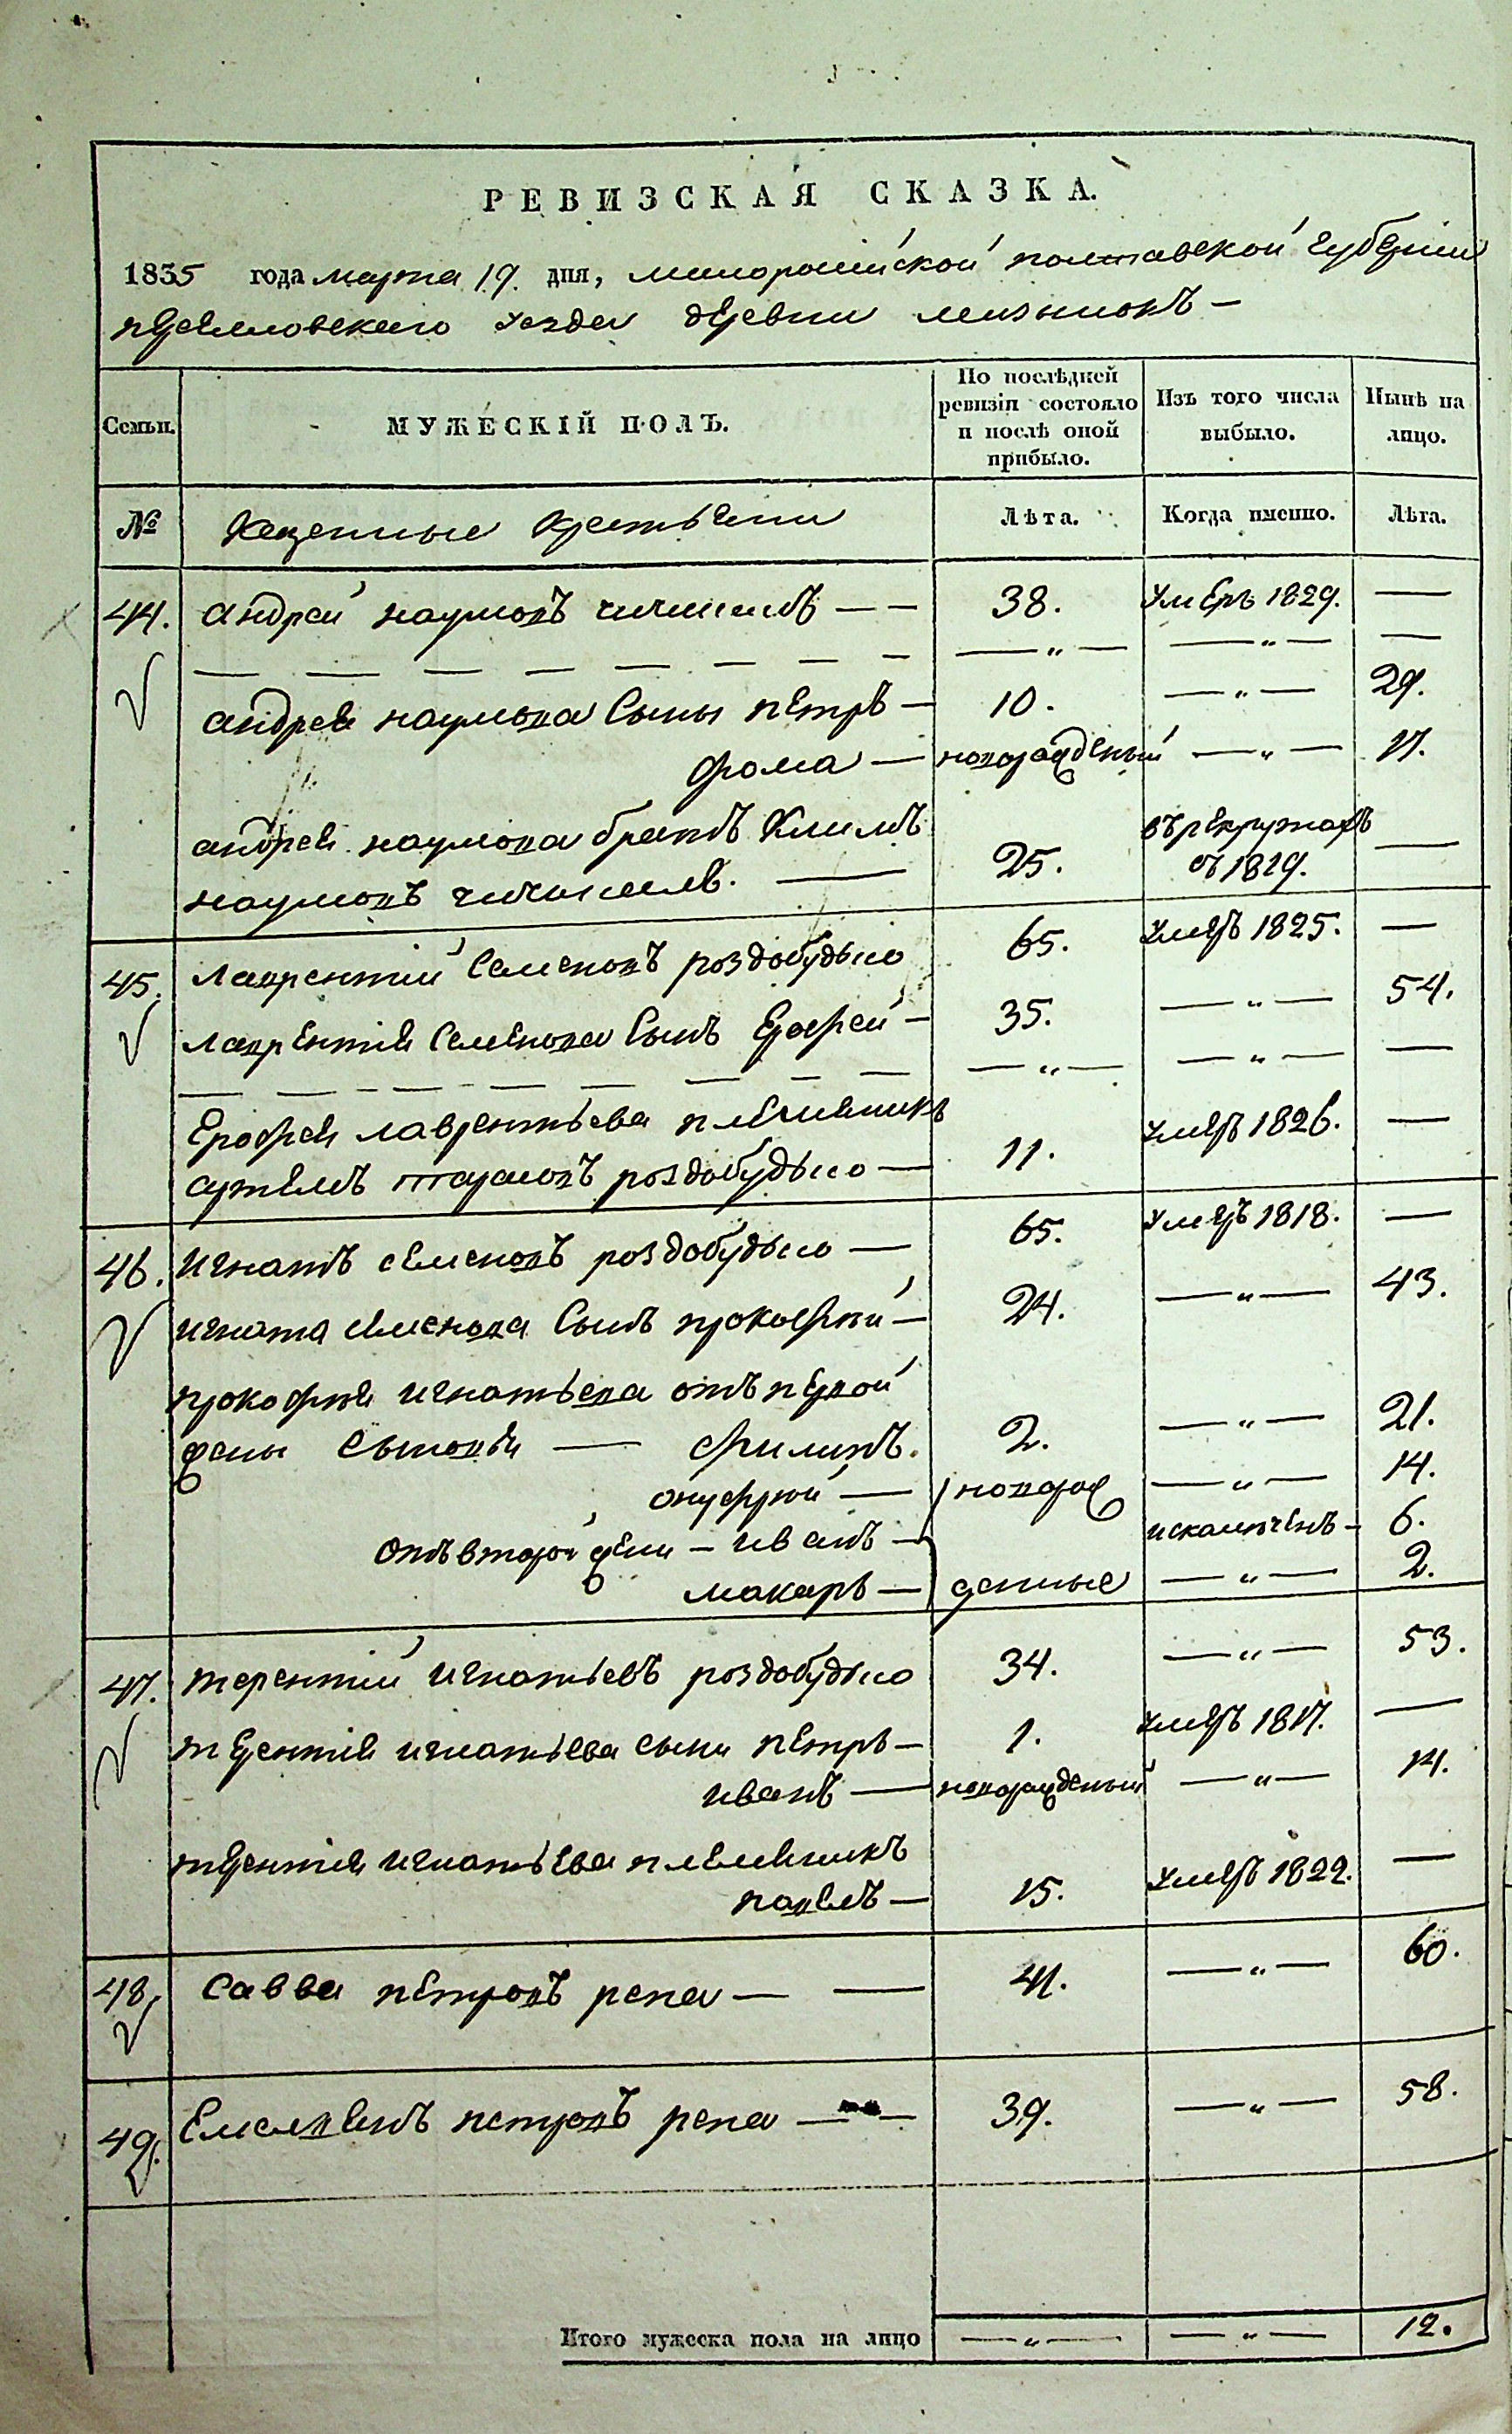 РЕВИЗСКАЯ СКАЗКА.
1835 года марта 19. дня, малоросийской полтавской губернии
переяловского уезда деревни
Семьи. МУЖЕСКІЙ ПОЛЪ. По послѣдней ревизіи состояло и послѣ оной прибыло. Изъ того числа выбыло. Нынѣ на лицо.
№ Казенные крестьяни Лѣта. Когда именно. Лѣта.
44. андрей наумовъ 38. умеръ 1829. —
— — — — — — — — — „ — — „ — —
андрея наумова сыны петръ — 10. — „ — 29.
фома — новорожденый — „ — 17.
андрея наумова братъ Климъ въ рекрутахъ
наумовъ — 25. съ 1829. —
45. лаврентий Семеновъ роздобудько 65. умеръ 1825. —
лаврентія Семенова сынъ Ерофей — 35. — „ — 54.
— — — — — — — — — — „ — — „ — —
Ерофея лаврентьева племеникъ
артемъ тарасовъ роздобудько — 11. умеръ 1826. —
46. игнатъ семеновъ роздобудько — 65. умеръ 1818. —
игната семенова сынъ прокофий — 24. — „ — 43.
прокофия игнатьева отъ первой
жены сыновья — филипъ. 2. — „ — 21.
онуфрий — новорож — „ — 14.
отъ второй жены — иванъ — исключенъ — 6.
макаръ — денные — „ — 2.
47. терентий игнатьевъ роздобудько 34. — „ — 53.
терентия игнатьева сыни петръ — 1. умеръ 1817. —
иванъ — новорожденый — „ — 14.
терентия игнатьева племеникъ
павелъ — 15. умеръ 1822. —
48. Савва петровъ репа — — 41. — „ — 60.
49. Емельянъ петровъ репа — — 39. — „ — 58.
Итого мужеска пола на лицо — „ — — „ — 12.